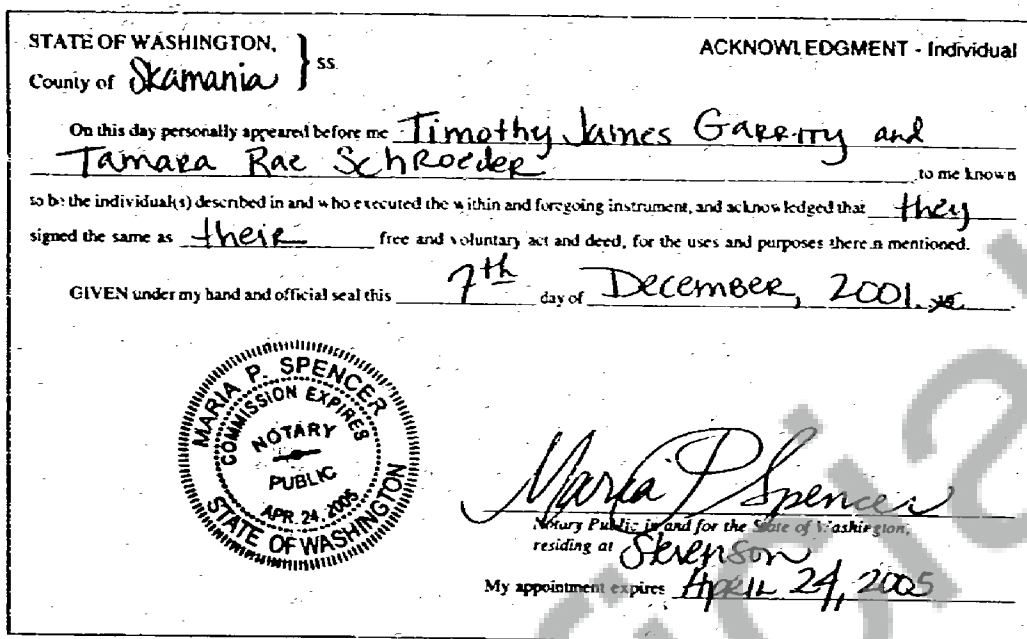 STATE OF WASHINGTON,
County of Skamania } ss.
ACKNOWLEDGMENT - Individual
On this day personally appeared before me Timothy James Garrity and
Tamara Rae Schroeder to me known
to be the individual(s) described in and who executed the within and foregoing instrument, and acknowledged that they
signed the same as their free and voluntary act and deed, for the uses and purposes therein mentioned.
GIVEN under my hand and official seal this 7th day of December, 2001.
MARIA P. SPENCER
COMMISSION EXPIRES
NOTARY
PUBLIC
APR. 24, 2005
STATE OF WASHINGTON
Maria P Spencer
Notary Public in and for the State of Washington,
residing at Stevenson
My appointment expires April 24, 2005